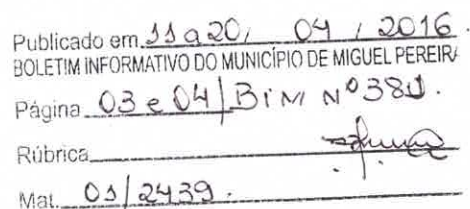 Publicado em 11 a 20, 04 / 2016.
BOLETIM INFORMATIVO DO MUNICÍPIO DE MIGUEL PEREIRA
Página 03 e 04 / BIM Nº 381.
Rúbrica
Mat. 01/2439.